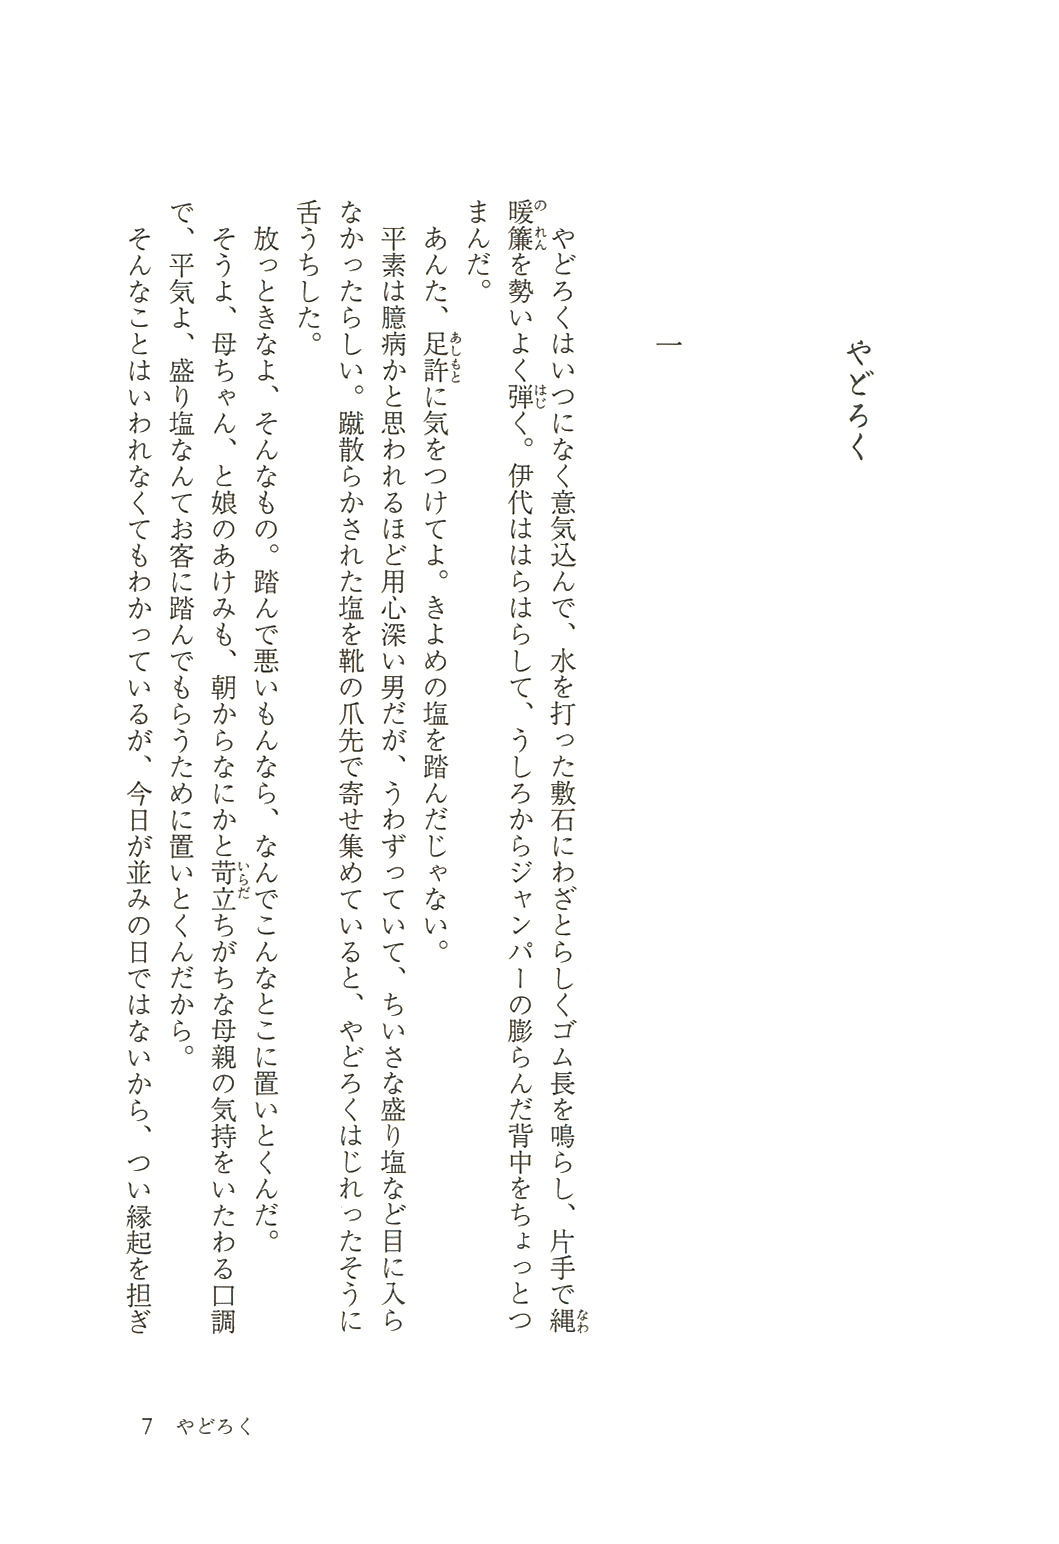 やどろく
一
やどろくはいつになく意気込んで、水を打った敷石にわざとらしくゴム長を鳴らし、片手で縄
暖簾を勢いよく弾く。伊代ははらはらして、うしろからジャンパーの膨らんだ背中をちょっとつ
まんだ。
あんた、足許に気をつけてよ。きよめの塩を踏んだじゃない。
平素は臆病かと思われるほど用心深い男だが、うわずっていて、ちいさな盛り塩など目に入ら
なかったらしい。蹴散らかされた塩を靴の爪先で寄せ集めていると、やどろくはじれったそうに
舌うちした。
放っときなよ、そんなもの。踏んで悪いもんなら、なんでこんなとこに置いとくんだ。
そうよ、母ちゃん、と娘のあけみも、朝からなにかと苛立ちがちな母親の気持をいたわる口調
で、平気よ、盛り塩なんてお客に踏んでもらうために置いとくんだから。
そんなことはいわれなくてもわかっているが、今日が並みの日ではないから、つい縁起を担ぎ
7 やどろく